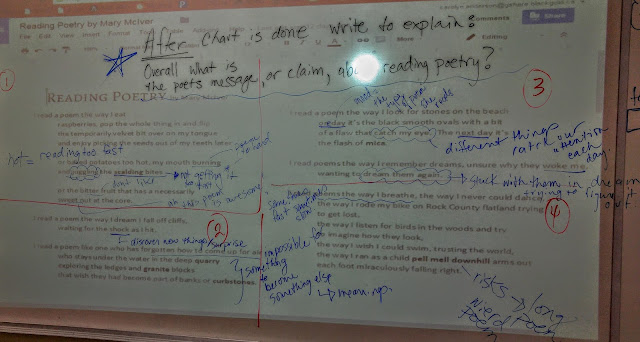 Reading Poetry by Mary McIver
Comments
Share
Editing
After chart is done write to explain:
Overall what is
the poets message, or claim, reading poetry?
1
3
READING POETRY
I read a poem the way I eat
raspberries, pop the whole thing in and flip
the temporarily velvet bit over on my tongue
and enjoy prying the seeds out of my teeth later
or baked potatoes too hot, my mouth burning
scalding bites
at the bitter fruit that has a necessarily
sweet part at the core.
hot = reading too fast
too hard
dont like?
not getting it
oh this poem is awesome
I read a poem the way I look for stones on the beach
one day it's the black smooth ovals with a bit
of a flaw that catch my eye. The next day it's
the flash of mica.
different things
catch our
attention
each
day.
I read poems the way I remember dreams, unsure why they woke me
wanting to dream them again.
stuck with them in dream
trying to
figure it
out
2
4
I read a poem the way I dream I fall off cliffs,
waiting for the shock as I hit.
discover new things/surprise
I read a poem like one who has forgotten how to come up for air
who dives under the water in the deep quarry
exploring the ledges and granite blocks
that wish they had become part of banks or curbstones.
impossible for
something
to
become
something else
meanings
poems the way I breathe, the way I never could dance,
the way I rode my bike on Rock County flatland trying
to get lost,
the way I listen for birds in the woods and try
to imagine how they look,
the way I wish I could swim, trusting the world,
the way I ran as a child pell mell downhill arms out
each foot miraculously falling right.
risks
long
Poem
Poem